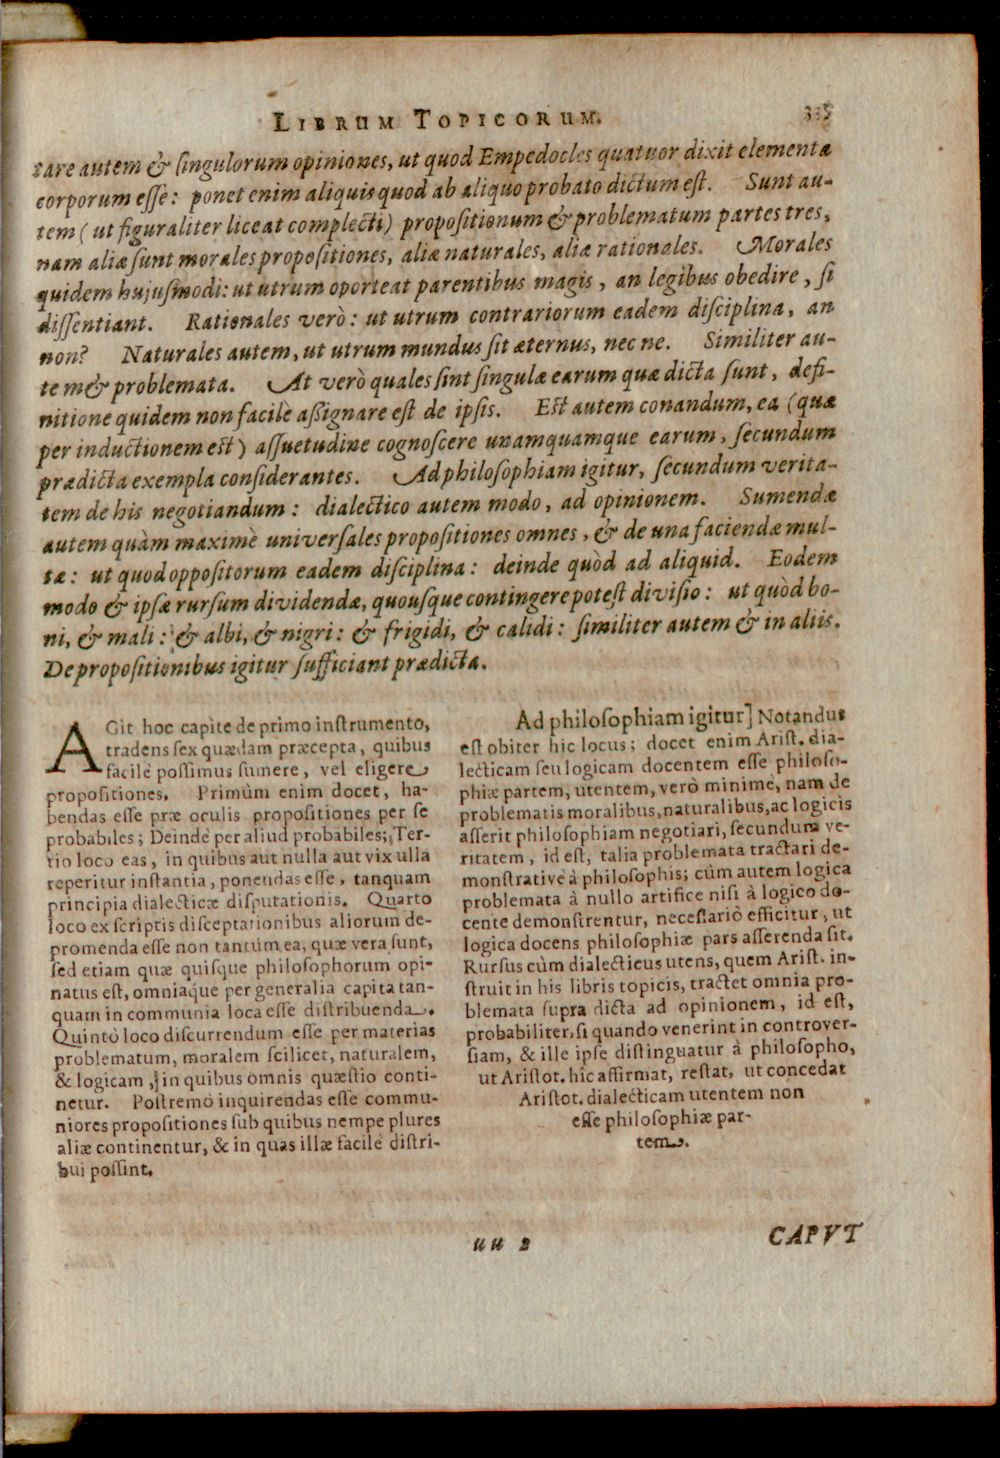 LIBRUM TOPICORUM. 335
tare autem & singulorum opiniones, ut quod Empedocles quatuor dixit elementa
corporum esse: ponet enim aliquis quod ab aliquo probato dictum est. Sunt au-
tem ( ut figuraliter liceat complecti) propositionum & problematum partes tres,
nam aliæ sunt morales propositiones, aliæ naturales, aliæ rationales. Morales
quidem hujusmodi: ut utrum oporteat parentibus magis, an legibus obedire, si
dissentiant. Rationales verò: ut utrum contrariorum eadem disciplina, an
non? Naturales autem, ut utrum mundus sit æternus, nec ne. Similiter au-
tem & problemata. At verò quales sint singulæ earum quæ dicta sunt, defi-
nitione quidem non facilè assignare est de ipsis. Est autem conandum, ea (quæ
per inductionem est) assuetudine cognoscere unamquamque earum, secundum
prædicta exempla considerantes. Ad philosophiam igitur, secundum verita-
tem de his negotiandum: dialectico autem modo, ad opinionem. Sumendæ
autem quàm maximè universales propositiones omnes, & de una faciendæ mul-
tæ: ut quod oppositorum eadem disciplina: deinde quòd ad aliquid. Eodem
modo & ipsæ rursum dividendæ, quousque contingere potest divisio: ut quòd bo-
ni, & mali: & albi, & nigri: & frigidi, & calidi: similiter autem & in aliis.
De propositionibus igitur sufficiant prædicta.
AGit hoc capite de primo instrumento,
tradens sex quædam præcepta, quibus
facilè possimus sumere, vel eligere
propositiones. Primùm enim docet, ha-
bendas esse præ oculis propositiones per se
probabiles; Deindè per aliud probabiles; Ter-
tio loco eas, in quibus aut nulla aut vix ulla
reperitur instantia, ponendas esse, tanquam
principia dialecticæ disputationis. Quarto
loco ex scriptis disceptationibus aliorum de-
promenda esse non tantùm ea, quæ vera sunt,
sed etiam quæ quisque philosophorum opi-
natus est, omniaque per generalia capita tan-
quam in communia loca esse distribuenda.
Quintò loco discurrendum esse per materias
problematum, moralem scilicet, naturalem,
& logicam, in quibus omnis quæstio conti-
netur. Postremò inquirendas esse commu-
niores propositiones sub quibus nempe plures
aliæ continentur, & in quas illæ facilè distri-
bui possint.
Ad philosophiam igitur] Notandus
est obiter hic locus; docet enim Arist. dia-
lecticam seu logicam docentem esse philoso-
phiæ partem, utentem, verò minimè, nam de
problematis moralibus, naturalibus, ac logicis
asserit philosophiam negotiari, secundum ve-
ritatem, id est, talia problemata tractari de-
monstrativè à philosophis; cùm autem logica
problemata à nullo artifice nisi à logico do-
cente demonstrentur, necessariò efficitur, ut
logica docens philosophiæ pars asserenda sit.
Rursus cùm dialecticus utens, quem Arist. in-
struit in his libris topicis, tractet omnia pro-
blemata supra dicta ad opinionem, id est,
probabiliter, si quando venerint in controver-
siam, & ille ipse distinguatur à philosopho,
ut Aristot. hîc affirmat, restat, ut concedat
Aristot. dialecticam utentem non
esse philosophiæ par-
tem.
uu 2 CAPVT